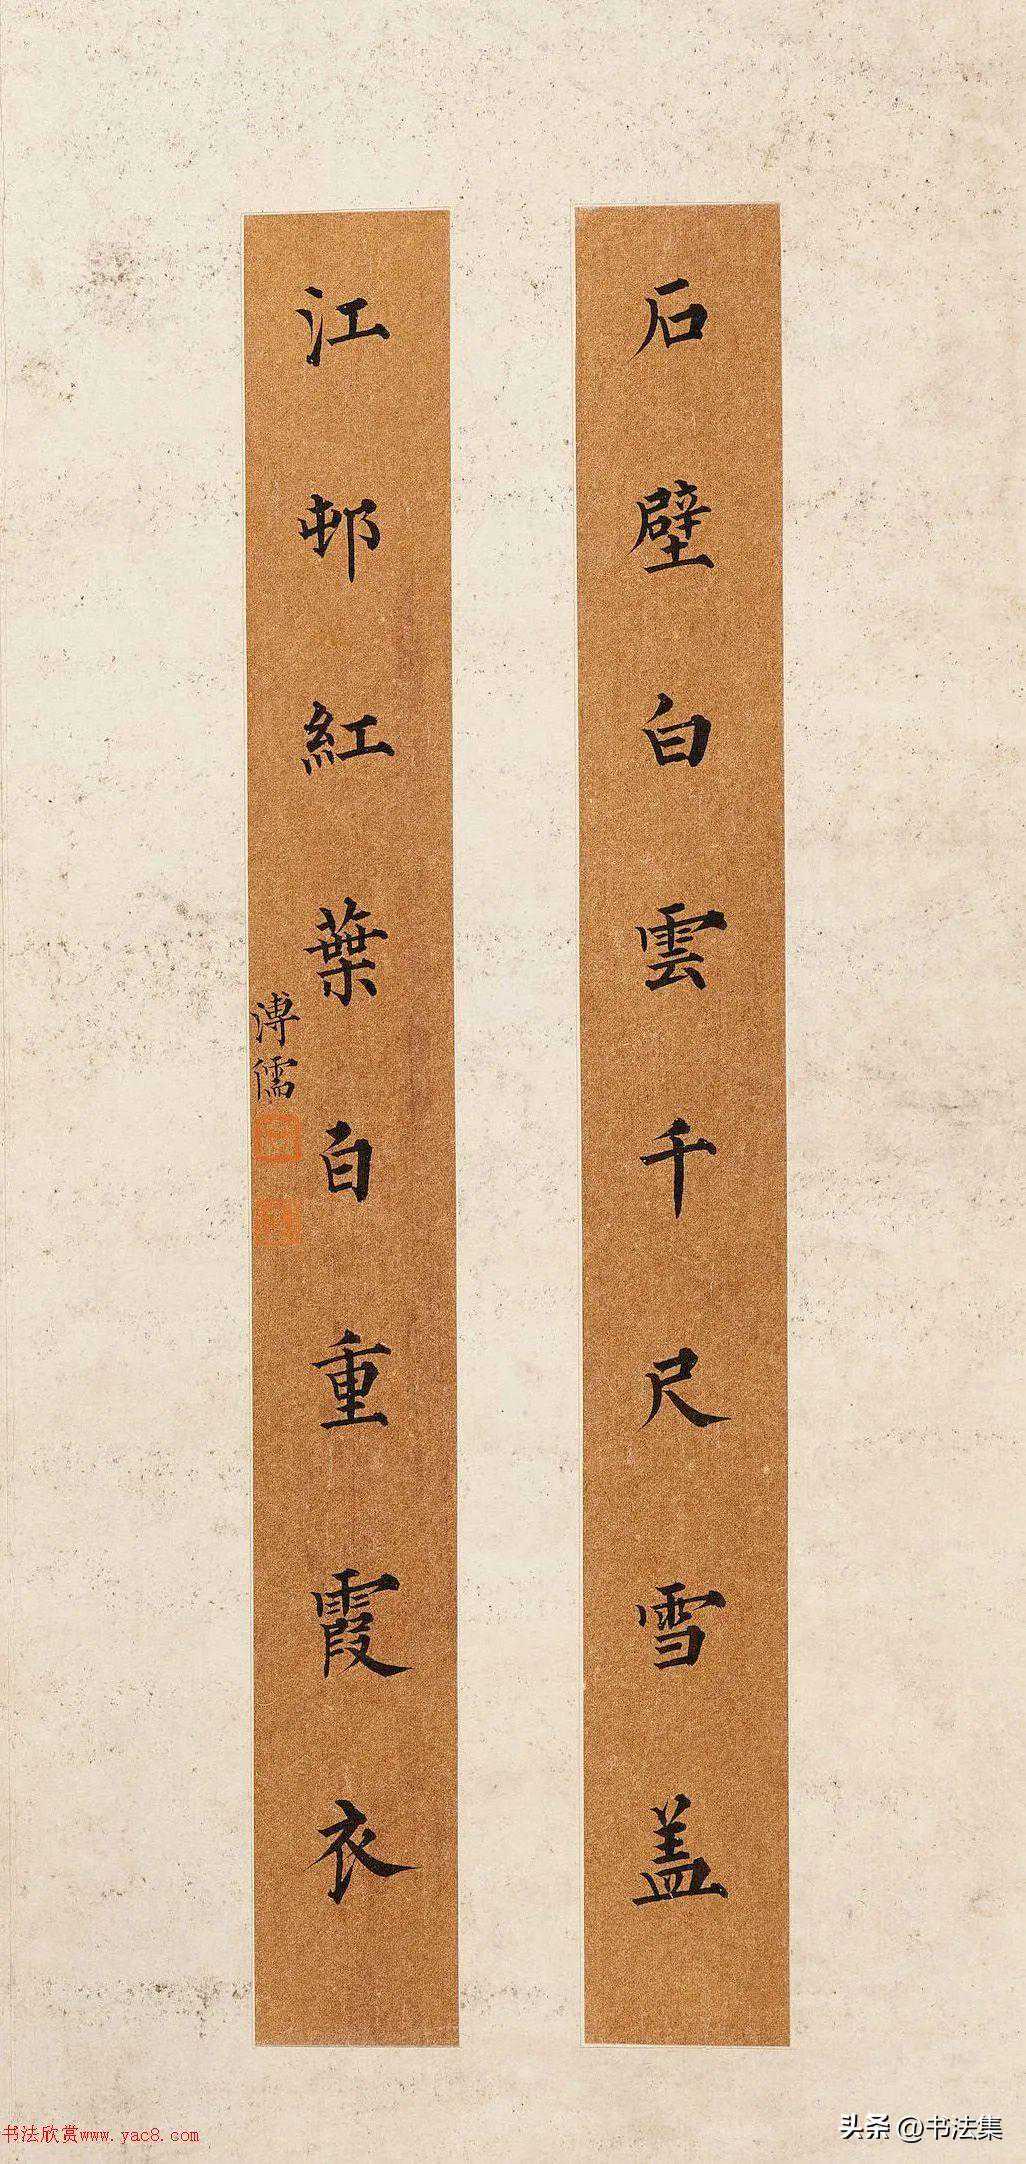 石壁白雲千尺雪盖
江邨紅葉百重霞衣
溥儒
书法欣赏www.yac8.com
头条 @书法集